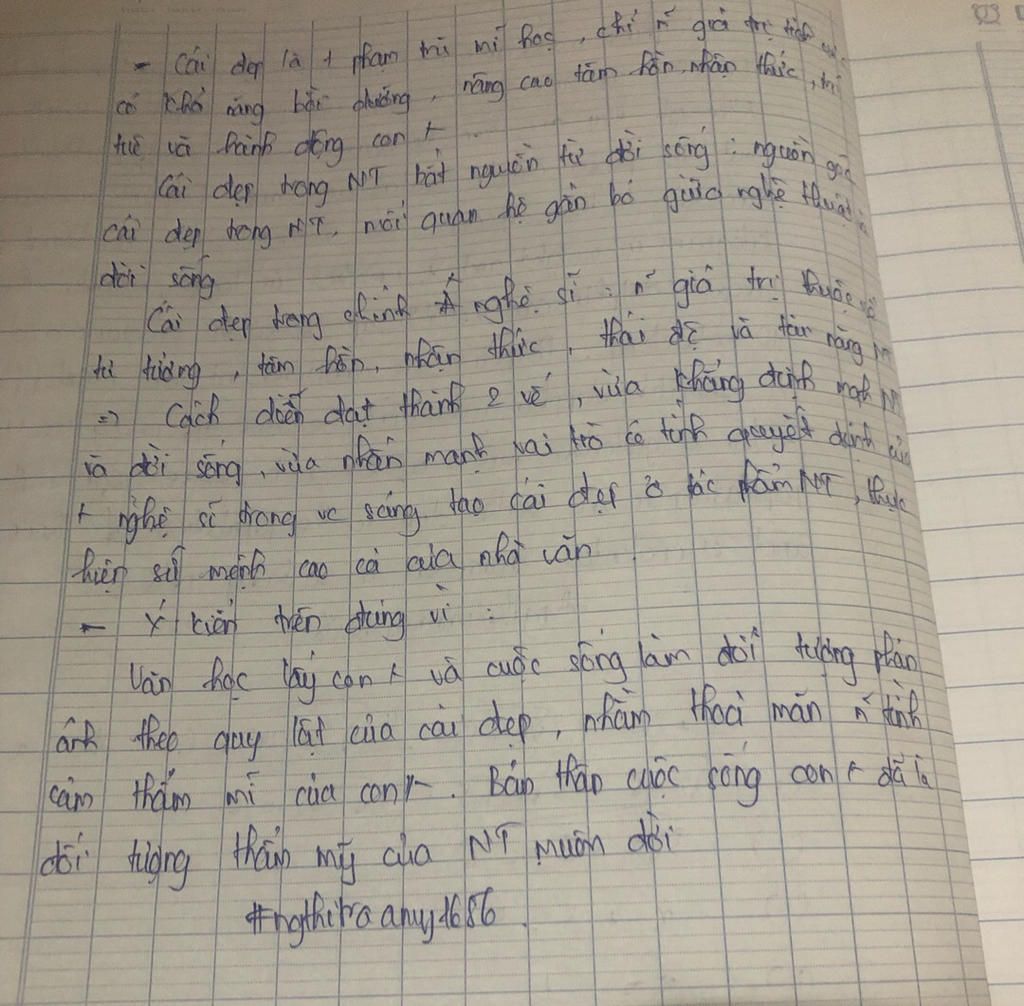 - Cái đẹp là 1 phạm trù mĩ học, chỉ n~ giá trị tích cực
có khả năng bồi dưỡng, nâng cao tâm hồn, nhận thức, trí
tuệ và hành động con +
Cái đẹp trong NT bắt nguồn từ đời sống: nguồn gốc
cái đẹp trong NT, mối quan hệ gắn bó giữa nghệ thuật và
đời sống
Cái đẹp trong chính nghệ sĩ: n~ giá trị thuộc về
tư tưởng, tâm hồn, nhận thức, thái độ và tài năng
=> Cách diễn đạt thành 2 vế, vừa khẳng định mqh NT
và đời sống, vừa nhấn mạnh vai trò có tính quyết định của
+ nghệ sĩ trong vc sáng tạo cái đẹp ở tác phẩm NT, thực
hiện sứ mệnh cao cả của nhà văn
- Ý kiến trên đúng vì:
Văn học lấy con + và cuộc sống làm đối tượng phản
ánh theo quy lật của cái đẹp, nhằm thoả mãn n~ tình
cảm thẩm mĩ của con +. Bản thân cuộc sống con + đã là
đối tượng thẩm mỹ của NT muôn đời
#ngthitraamy1686